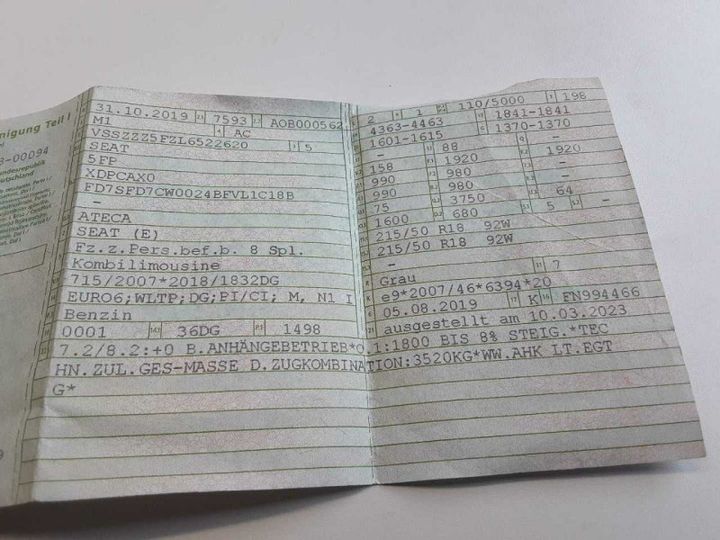 nigung Teil I
-00094
undesrepublik
eutschland
31.10.2019 7593 AOB000562
M1 AC
VSSZZZ5FZL6522620 5
SEAT
5FP
XDPCAX0
FD7SFD7CW0024BFVL1C18B
-
ATECA
SEAT (E)
Fz.z.Pers.bef.b. 8 Spl.
Kombilimousine
715/2007*2018/1832DG
EURO6;WLTP;DG;PI/CI; M, N1 I
Benzin
0001 36DG 1498
2 1 110/5000 198
4363-4463 1841-1841
1601-1615 1370-1370
- 88 -
158 1920 1920
990 980 -
990 980 -
75 3750 64
1600 680 5 -
215/50 R18 92W
215/50 R18 92W
-
Grau 7
e9*2007/46*6394*20
05.08.2019 K FN994466
ausgestellt am 10.03.2023
7.2/8.2:+0 B.ANHÄNGEBETRIEB*O.1:1800 BIS 8% STEIG.*TEC
HN.ZUL.GES-MASSE D.ZUGKOMBINATION:3520KG*WW.AHK LT.EGT
G*